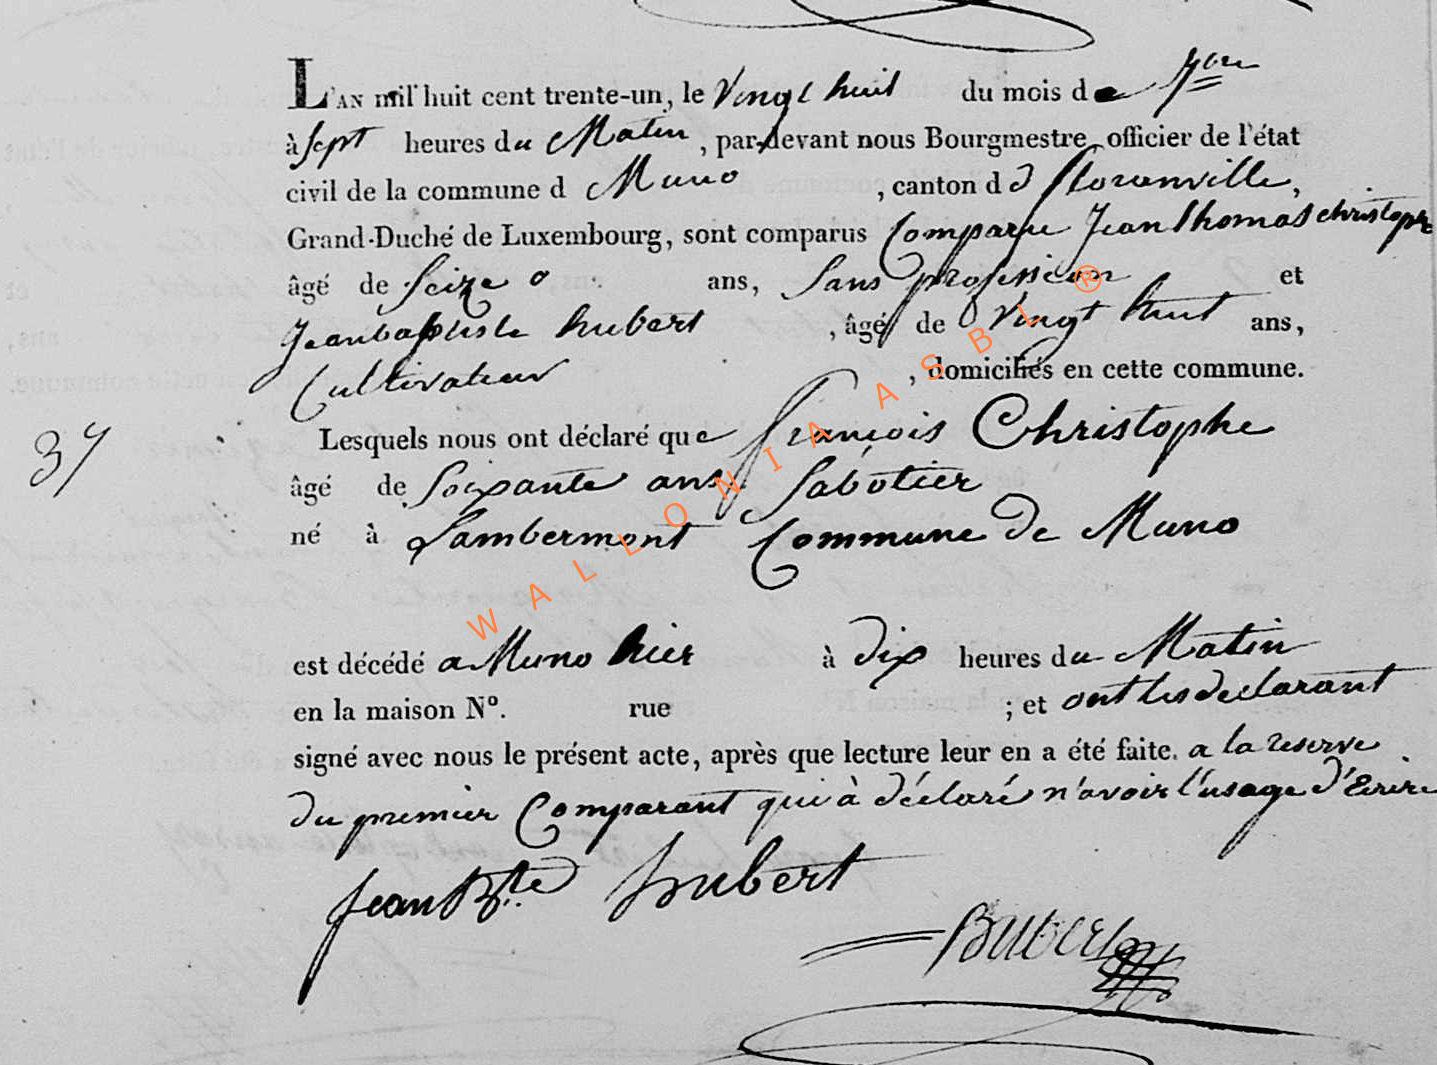 L'AN mil huit cent trente-un, le Vingt huit du mois de 7bre
à sept heures du Matin, par-devant nous Bourgmestre, officier de l'état
civil de la commune d Muno, canton d d florenville,
Grand-Duché de Luxembourg, sont comparus Comparu Jean thomas christophe
âgé de Seize ans, Sans profession et
Jean baptiste hubert, âgé de Vingt huit ans,
Cultivateur, domiciliés en cette commune.
37
Lesquels nous ont déclaré que françois Christophe
âgé de soixante ans Sabotier
né à Lambermont Commune de Muno
est décédé a Muno hier à dix heures du Matin
en la maison N°. rue ; et ont les declarant
signé avec nous le présent acte, après que lecture leur en a été faite. a la reserve
du premier Comparant qui à déclaré n'avoir l'usage d'Ecrire
Jean Bte hubert
WALLONIA ASBL ®